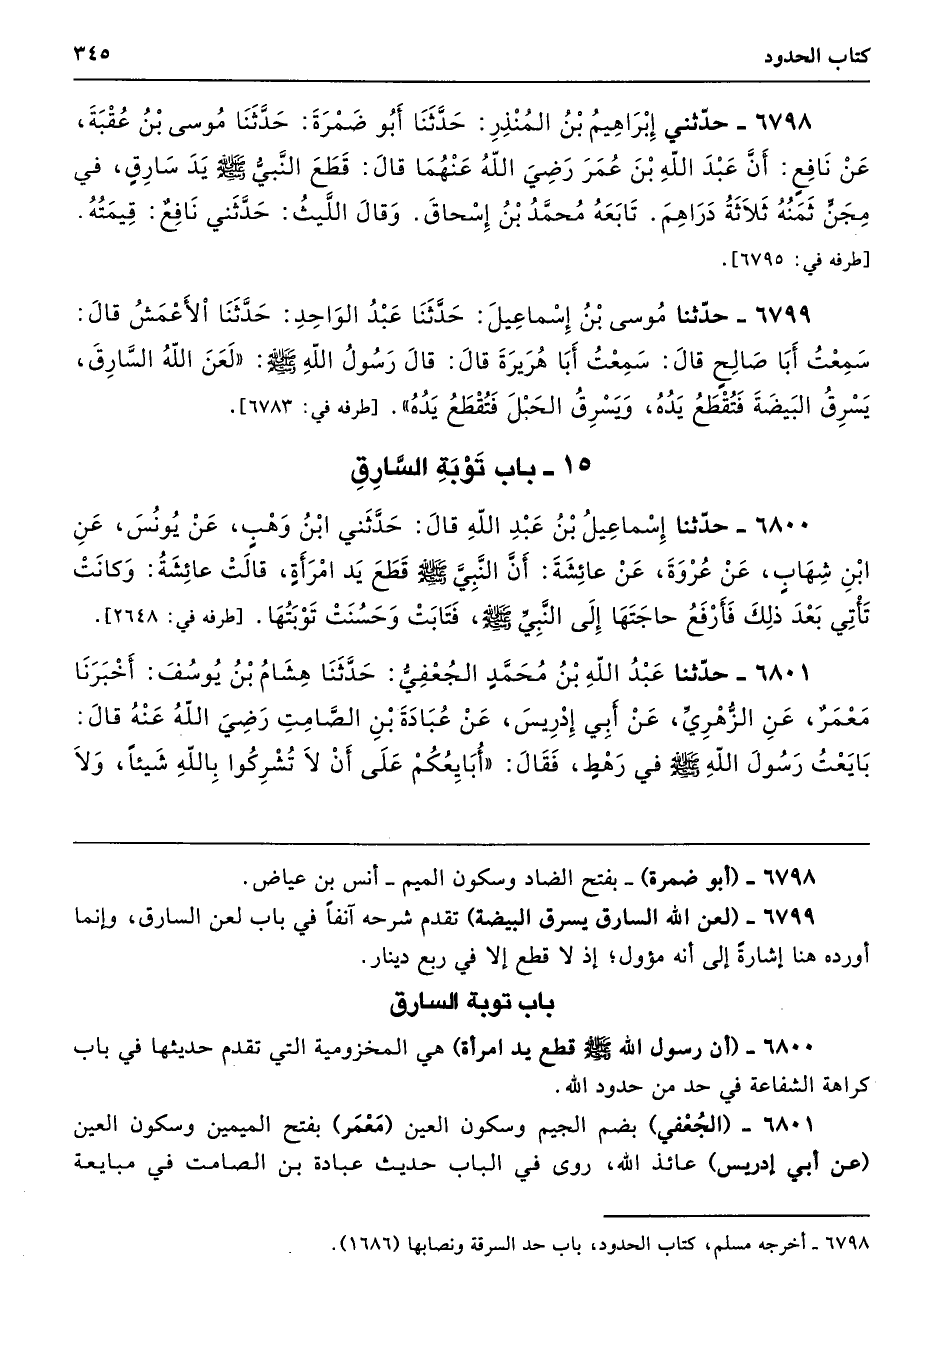 كتاب الحدود ٣٤٥
٦٧٩٨ ـ حدّثني إِبْرَاهِيمُ بْنُ المُنْذِرِ: حَدَّثَنَا أَبُو ضَمْرَةَ: حَدَّثَنَا مُوسى بْنُ عُقْبَةَ،
عَنْ نَافِعٍ: أَنَّ عَبْدَ اللّهِ بْنَ عُمَرَ رَضِيَ اللّهُ عَنْهُمَا قالَ: قَطَعَ النَّبِيُّ ﷺ يَدَ سَارِقٍ، في
مِجَنٍّ ثَمَنُهُ ثَلاَثَةُ دَرَاهِمَ. تَابَعَهُ مُحمَّدُ بْنُ إِسْحاقَ. وَقالَ اللَّيثُ: حَدَّثَني نَافِعٌ: قِيمَتُهُ.
[طرفه في: ٦٧٩٥].
٦٧٩٩ ـ حدّثنا مُوسى بْنُ إِسْماعِيلَ: حَدَّثَنَا عَبْدُ الوَاحِدِ: حَدَّثَنَا الأَعْمَشُ قالَ:
سَمِعْتُ أَبَا صَالِحٍ قالَ: سَمِعْتُ أَبَا هُرَيرَةَ قالَ: قالَ رَسُولُ اللّهِ ﷺ: «لَعَنَ اللّهُ السَّارِقَ،
يَسْرِقُ البَيضَةَ فَتُقْطَعُ يَدُهُ، وَيَسْرِقُ الحَبْلَ فَتُقْطَعُ يَدُهُ». [طرفه في: ٦٧٨٣].
١٥ ـ باب تَوْبَةِ السَّارِقِ
٦٨٠٠ ـ حدّثنا إِسْماعِيلُ بْنُ عَبْدِ اللّهِ قالَ: حَدَّثَني ابْنُ وَهْبٍ، عَنْ يُونُسَ، عَنِ
ابْنِ شِهَابٍ، عَنْ عُرْوَةَ، عَنْ عائِشَةَ: أَنَّ النَّبِيَّ ﷺ قَطَعَ يَدَ امْرَأَةٍ، قالَتْ عائِشَةُ: وَكانَتْ
تَأْتِي بَعْدَ ذلِكَ فَأَرْفَعُ حاجَتَهَا إِلَى النَّبِيِّ ﷺ، فَتَابَتْ وَحَسُنَتْ تَوْبَتُهَا. [طرفه في: ٢٦٤٨].
٦٨٠١ ـ حدّثنا عَبْدُ اللّهِ بْنُ مُحَمَّدٍ الجُعْفِيُّ: حَدَّثَنَا هِشَامُ بْنُ يُوسُفَ: أَخْبَرَنَا
مَعْمَرٌ، عَنِ الزُّهْرِيِّ، عَنْ أَبِي إِدْرِيسَ، عَنْ عُبَادَةَ بْنِ الصَّامِتِ رَضِيَ اللّهُ عَنْهُ قالَ:
بَايَعْتُ رَسُولَ اللّهِ ﷺ في رَهْطٍ، فَقَالَ: «أُبَايِعُكُمْ عَلَى أَنْ لاَ تُشْرِكُوا بِاللّهِ شَيئاً، وَلاَ
٦٧٩٨ ـ (أبو ضمرة) ـ بفتح الضاد وسكون الميم ـ أنس بن عياض.
٦٧٩٩ ـ (لعن الله السارق يسرق البيضة) تقدم شرحه آنفاً في باب لعن السارق، وإنما
أورده هنا إشارةً إلى أنه مؤول؛ إذ لا قطع إلا في ربع دينار.
باب توبة السارق
٦٨٠٠ ـ (أن رسول الله ﷺ قطع يد امرأة) هي المخزومية التي تقدم حديثها في باب
كراهة الشفاعة في حد من حدود الله.
٦٨٠١ ـ (الجُعْفي) بضم الجيم وسكون العين (مَعْمَر) بفتح الميمين وسكون العين
(عن أبي إدريس) عائذ الله، روى في الباب حديث عبادة بن الصامت في مبايعة
٦٧٩٨ ـ أخرجه مسلم، كتاب الحدود، باب حد السرقة ونصابها (١٦٨٦).